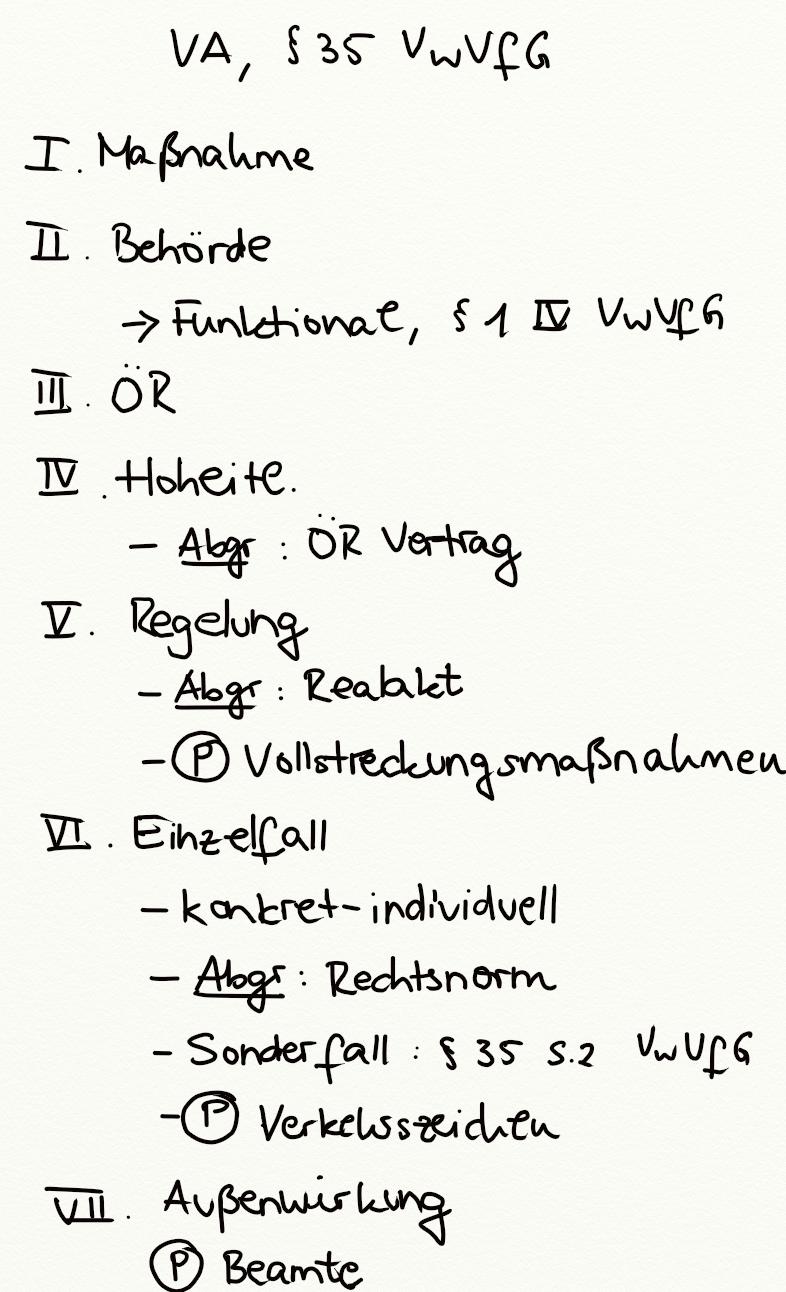 VA, § 35 VwVfG
I. Maßnahme
II. Behörde
→ Funktional, § 1 IV VwVfG
III. ÖR
IV. Hoheitl.
- Abgr: ÖR Vertrag
V. Regelung
- Abgr: Realakt
- Ⓟ Vollstreckungsmaßnahmen
VI. Einzelfall
- konkret-individuell
- Abgr: Rechtsnorm
- Sonderfall: § 35 S.2 VwVfG
- Ⓟ Verkehrszeichen
VII. Außenwirkung
Ⓟ Beamte